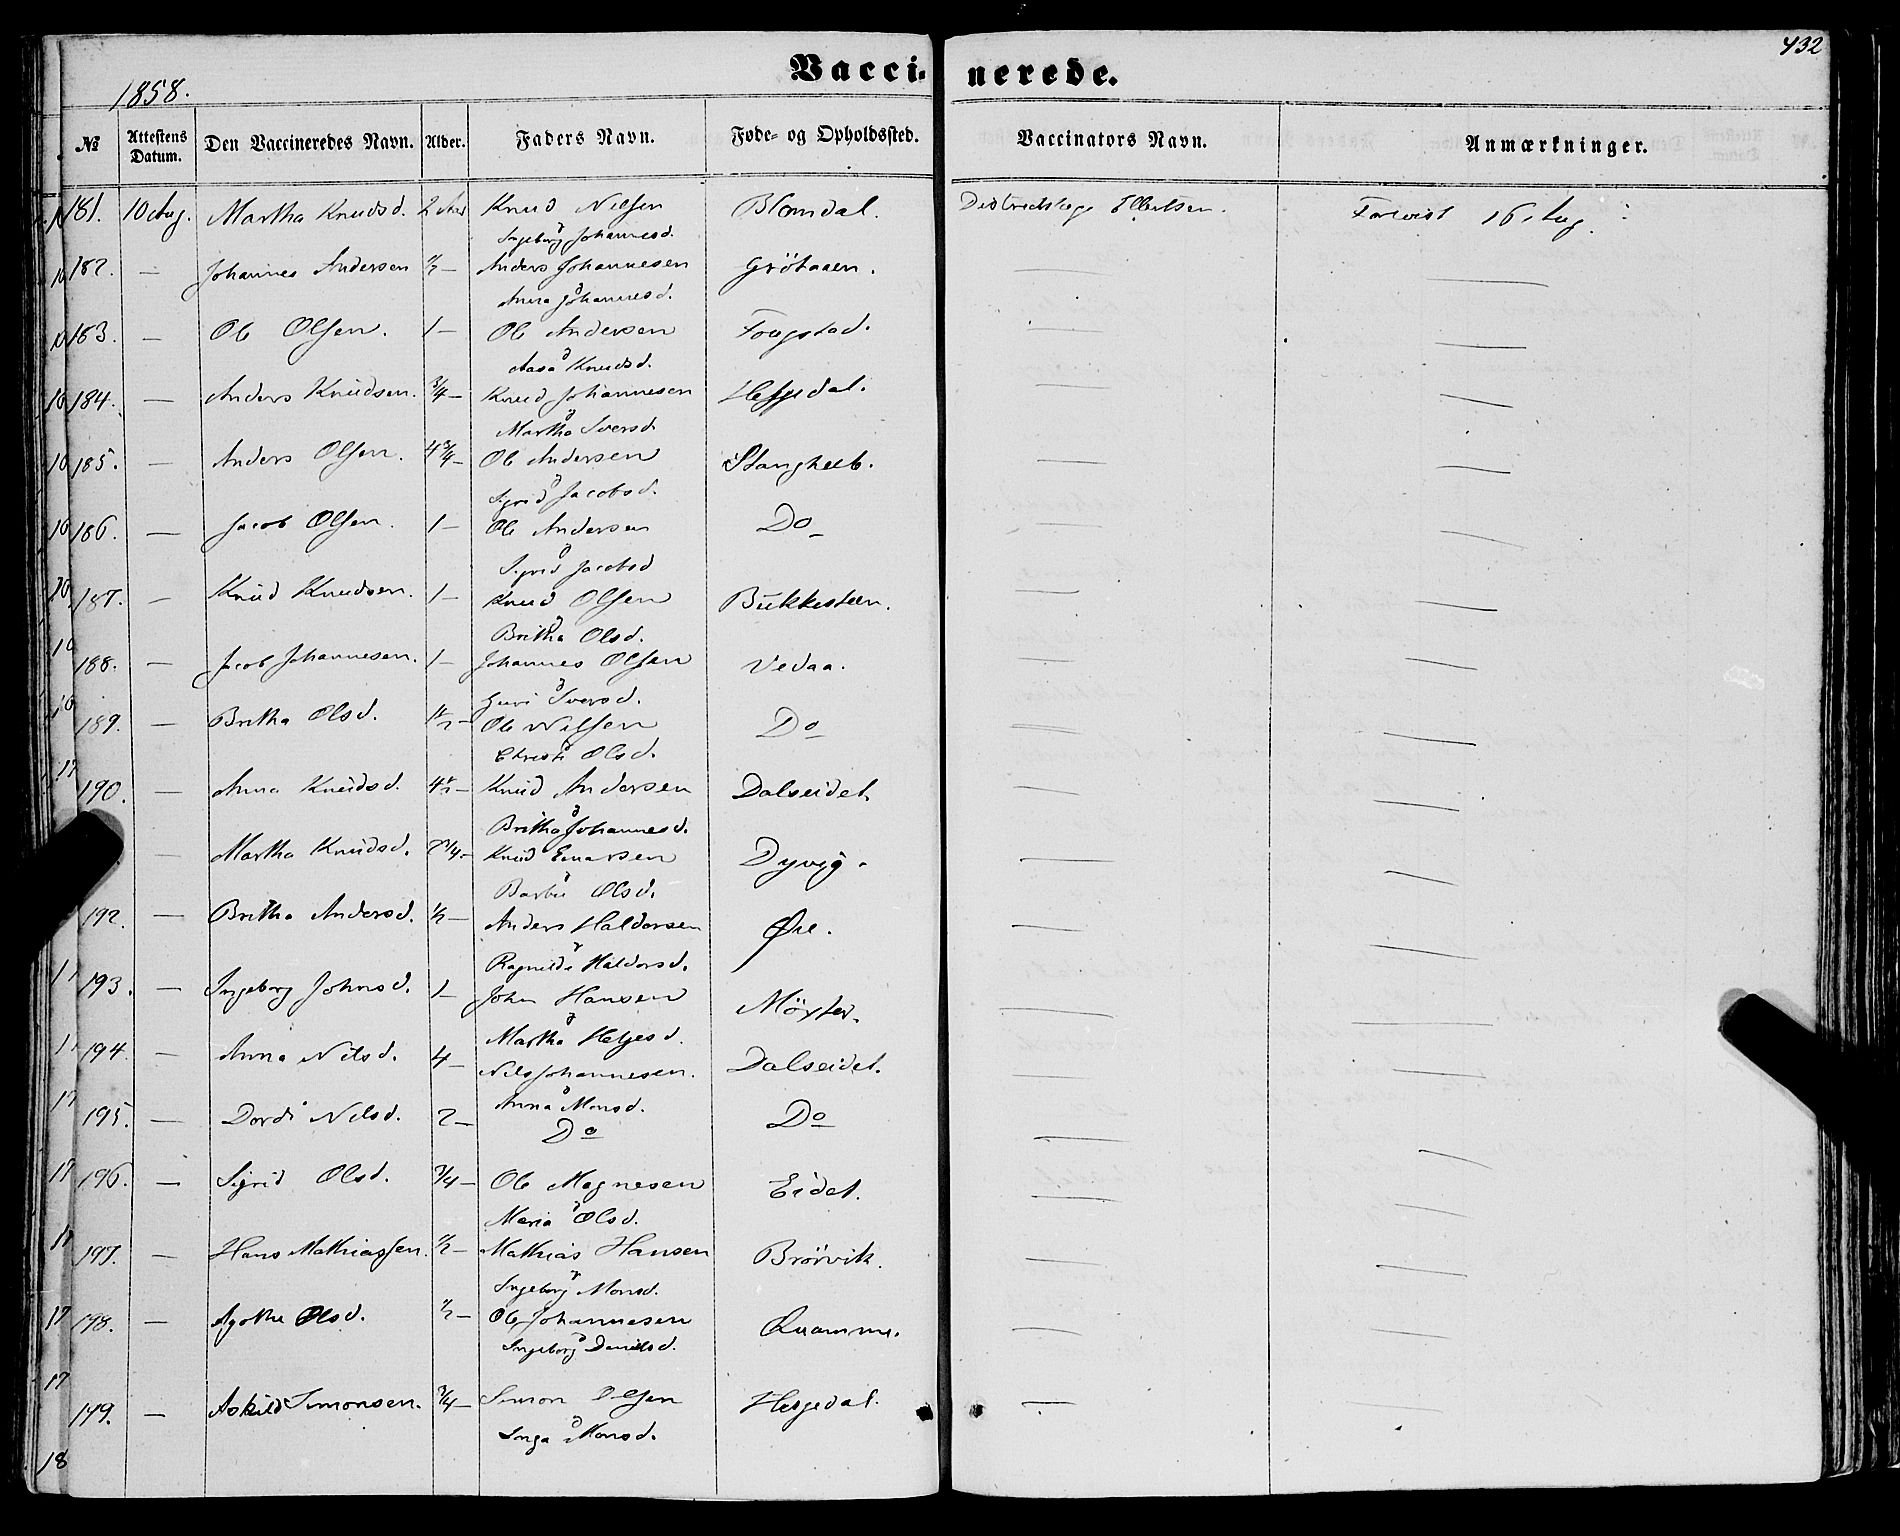 432
1858.
Vacci- nerede.
№ Attestens Datum. Den Vaccineredes Navn. Alder. Faders Navn. Føde- og Opholdssted. Vaccinators Navn. Anmærkninger.
181. 10 Aug. Martha Knudsd. 2 Knud Nilsen Blomdal. Ellertsen. 16 Aug.
Ingeborg Johannesd.
182. — Johannes Andersen ½ — Anders Johannesen Grötaaen.
Anna Johannesd.
183. — Ole Olsen. 1 — Ole Andersen Fougstad.
Aasa Knudsd.
184. — Anders Knudsen. ¾ — Knud Johannesen Hesjedal.
Martha Iversd.
185. — Anders Olsen. 4¾ — Ole Andersen Stanghelle.
Sigrid Jacobsd.
186. — Jacob Olsen. 1 — Ole Andersen Do
Sigrid Jacobsd
187. — Knud Knudsen. 1 — Knud Olsen Bukkesteen.
Britha Olsd.
188. — Jacob Johannesen. 1 — Johannes Olsen Vedaa.
Guri Iversd.
189. — Britha Olsd. 1½ — Ole Nilsen Do
Christi Olsd.
190. — Anna Knudsd. 4½ — Knud Andersen Dalseidet.
Britha Johannesd.
— Martha Knudsd. 2¾ — Knud Einarsen Dyvig.
Olsd.
192. — Britha Andersd. ½ — Anders Haldorsen Øie.
Ragnilde Haldorsd.
193. — Ingeborg Johnsd. 1 — John Hansen Möxter.
Martha Helgesd.
194. — Anna Nilsd. 4 — Nils Johannesen. Dalseidet.
Anna Monsd.
195. — Dordi Nilsd. 2 — Do Do
196. — Sigrid Olsd. ¾ — Ole Magnesen Eidet.
Maria Olsd.
197. — Hans Mathiassen. ½ — Mathias Hansen Brörvik.
Ingeborg Monsd.
198. — Agathe Olsd. ½ — Ole Johannesen Qvamme.
Ingeborg Danielsd.
199. — Askild Simonsen. ¾ — Simon Olsen Hesjedal.
Inga Monsd.